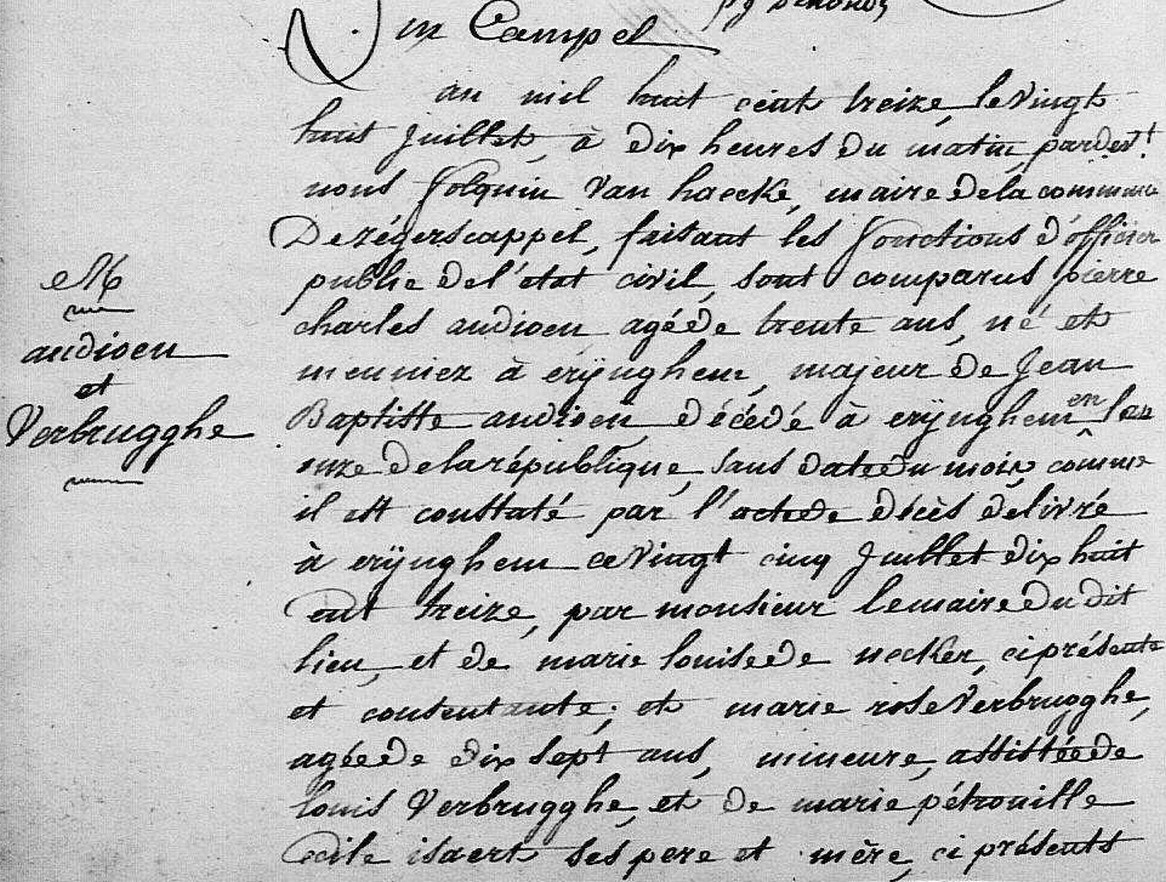 Jn Campel
an mil huit cent treize, le Vingt
huit Juillet, à dix heures du matin pardevt
nous folquin Van haecke, maire de la commune
De zégerscappel, faisant les fonctions d'officier
public de l'état civil, sont comparus pierre
charles audioen agé de trente ans, né et
meunier à erÿnghem, majeur de Jean
Baptiste audioen décédé à erÿnghem en l'an
onze de la république, sans date du mois, comme
il est constaté par l'acte de décès délivré
à erÿnghem ce Vingt cinq Juillet dix huit
cent treize, par monsieur le maire du dit
lieu, et de marie louise de necker, ci présente
et consentante; et marie rose Verbrugghe,
agée de dix sept ans, mineure, assistée de
louis Verbrugghe, et de marie pétronille
Cécile isaert ses pere et mère, ci présents
M
audioen
et
Verbrugghe